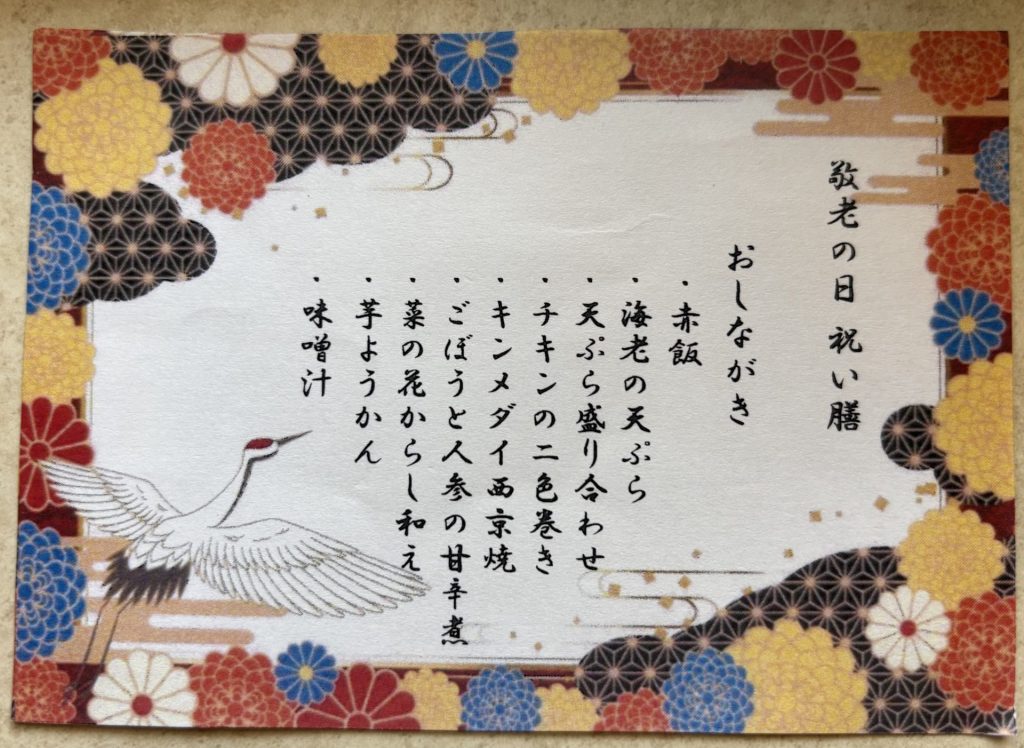 敬老の日 祝い膳
おしながき
・赤飯
・海老の天ぷら
・天ぷら盛り合わせ
・チキンの二色巻き
・キンメダイ西京焼
・ごぼうと人参の甘辛煮
・菜の花からし和え
・芋ようかん
・味噌汁